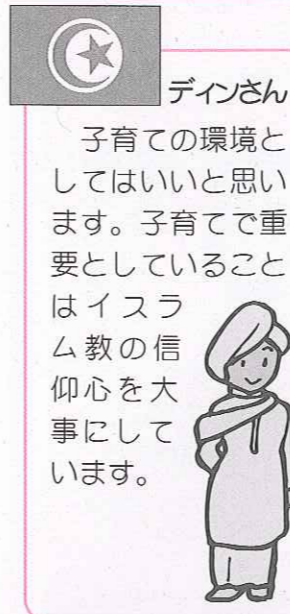 ディンさん
　子育ての環境と
してはいいと思い
ます。子育てで重
要としていること
はイスラ
ム教の信
仰心を大
事にして
います。